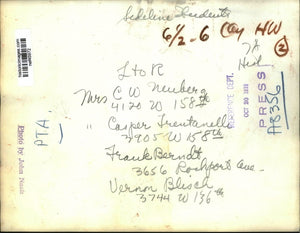 Sideline Students
6 1/2 - 6 Coy HW
2
L to R
Mrs C W Neuberg
4120 W 158th
" Casper Trentanelli
3905 W 158th
Frank Berndt
3656 Rockport Ave
Vernon Blesch
3744 W 136th
PTA
Photo by John Nash
REFERENCE DEPT.
OCT 30 1970
PRESS
A8356